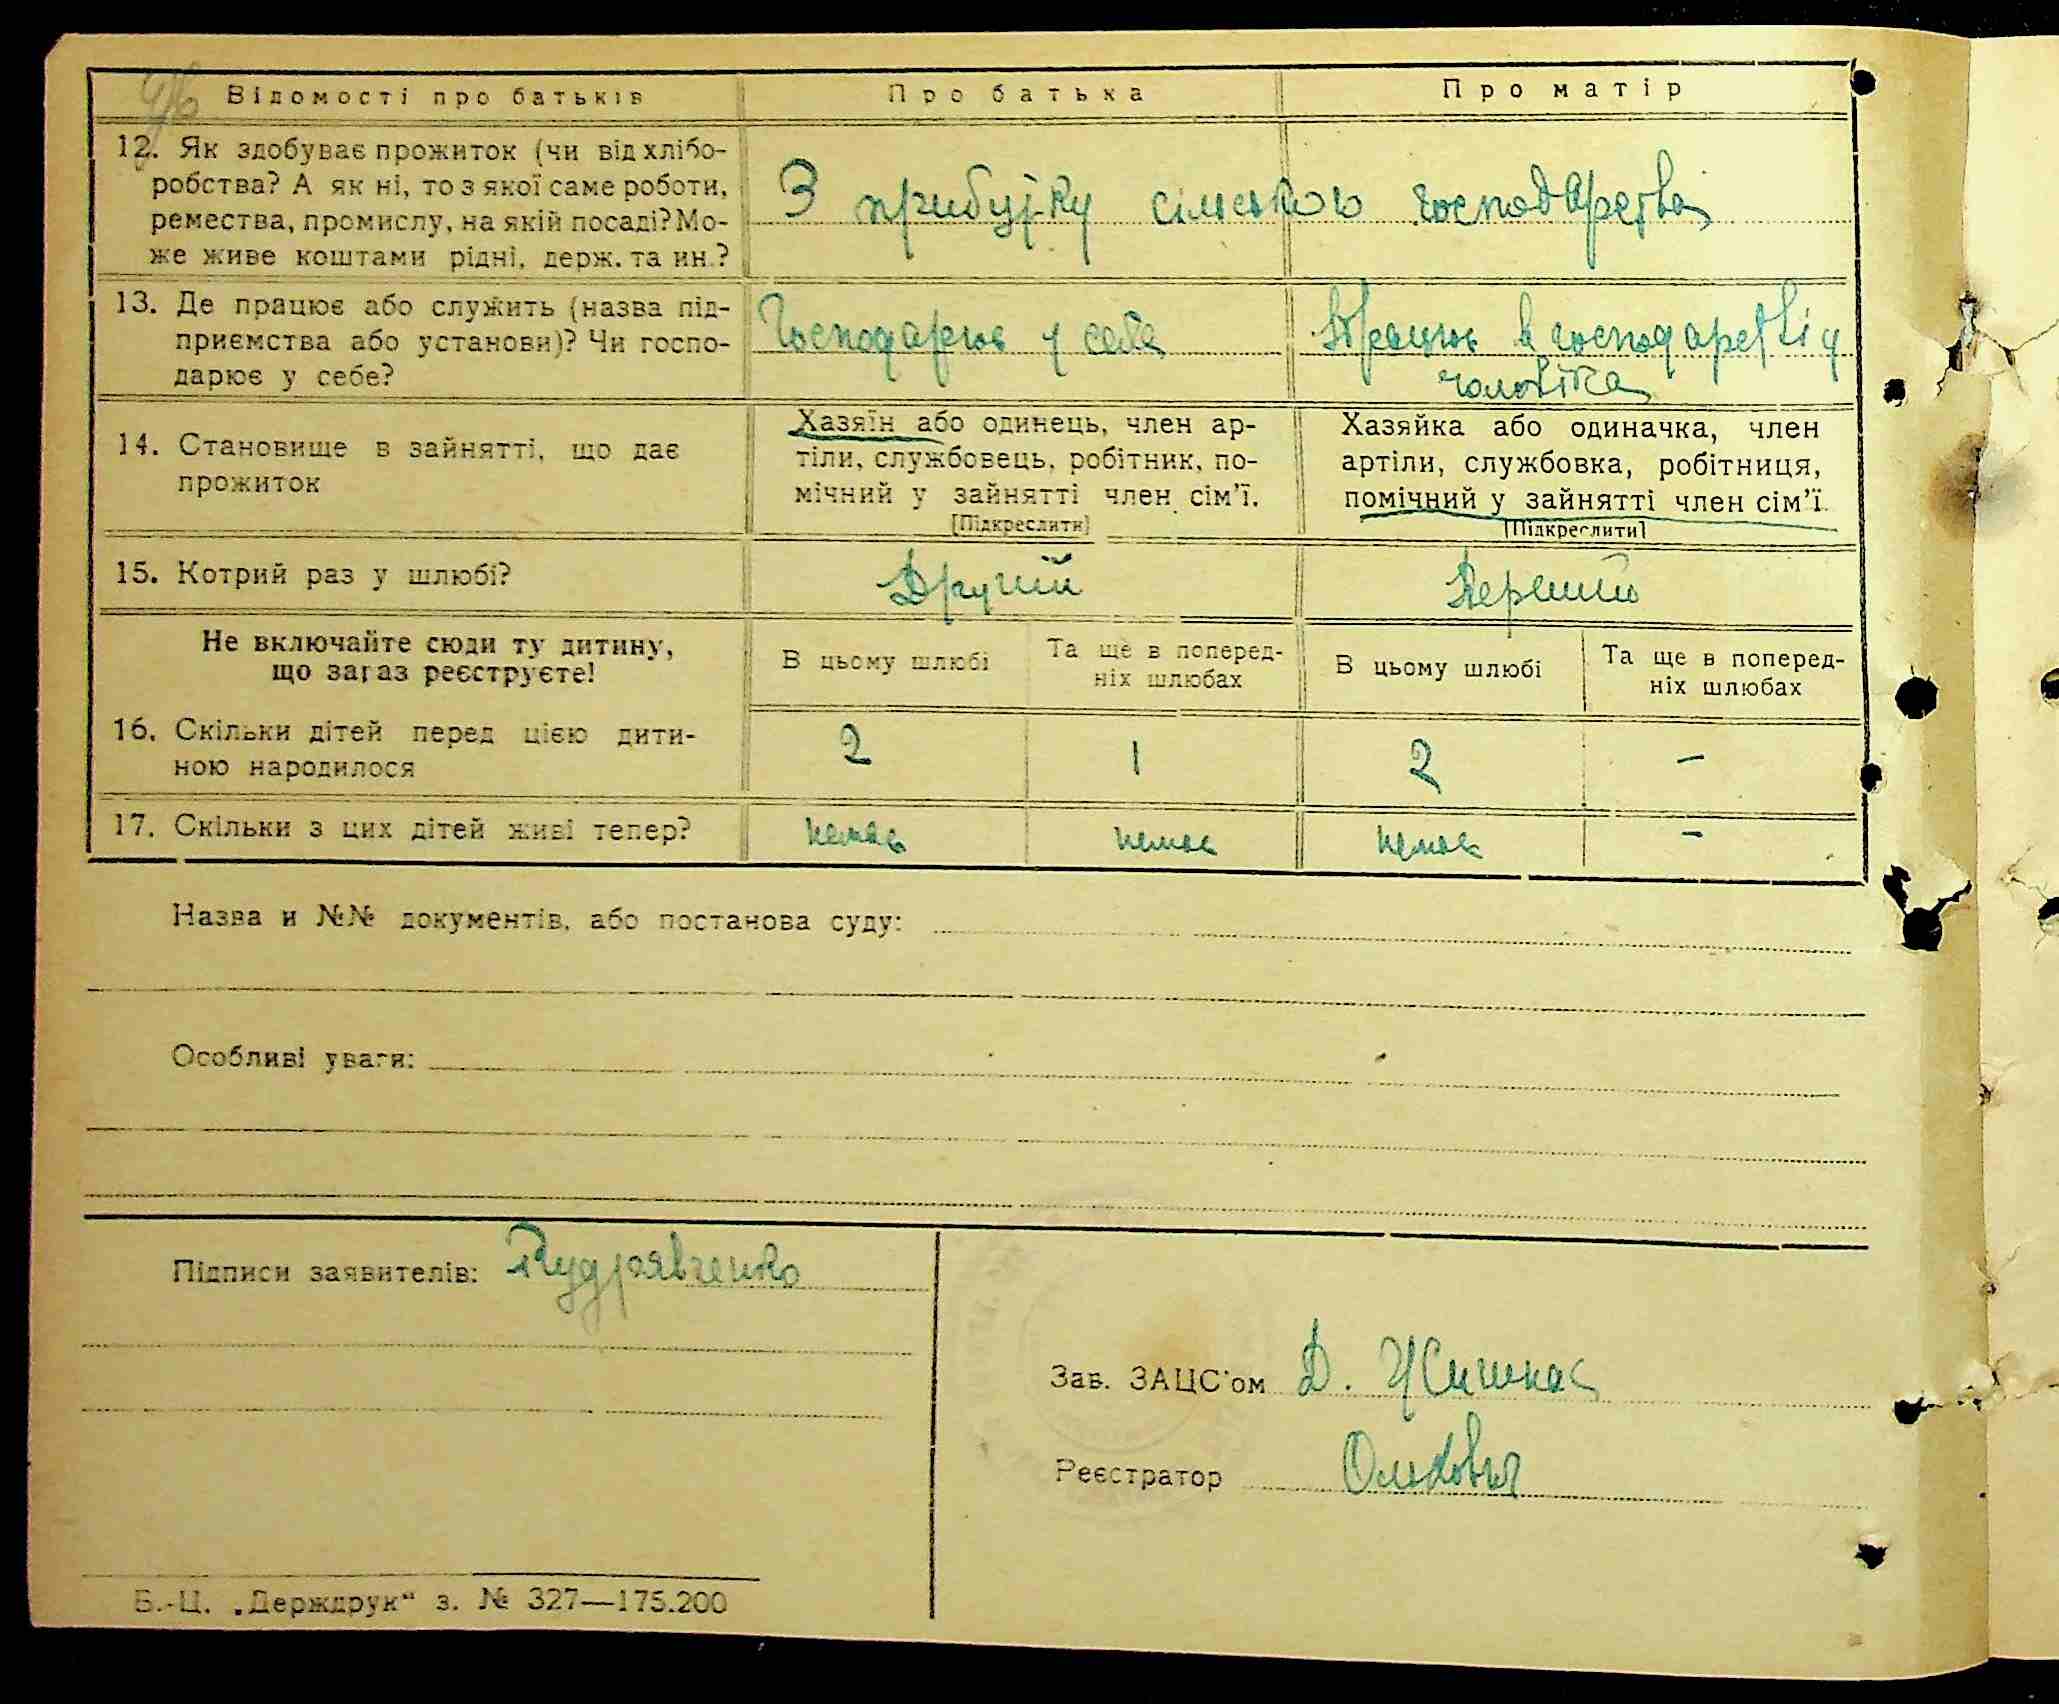 Відомості про батьків
Про батька
Про матір
12. Як здобуває прожиток (чи від хлібо-
робства? А як ні, то з якої саме роботи,
ремества, промислу, на якій посаді? Мо-
же живе коштами рідні, держ. та ин.?
З прибутку сільського господарства
13. Де працює або служить (назва під-
приємства або установи)? Чи госпо-
дарює у себе?
Господарює у себе
Працює в господарстві у
чоловіка
14. Становище в зайнятті, що дає
прожиток
Хазяїн або одинець, член ар-
тіли, службовець, робітник, по-
мічний у зайнятті член сім’ї.
[Підкреслити]
Хазяйка або одиначка, член
артіли, службовка, робітниця,
помічний у зайнятті член сім’ї
[Підкреслити]
15. Котрий раз у шлюбі?
Другий
Перший
Не включайте сюди ту дитину,
що зараз реєструєте!
В цьому шлюбі
Та ще в поперед-
ніх шлюбах
В цьому шлюбі
Та ще в поперед-
ніх шлюбах
16. Скільки дітей перед цією дити-
ною народилося
2
1
2
–
17. Скільки з цих дітей живі тепер?
немає
немає
немає
–
Назва и №№ документів, або постанова суду:
Особливі уваги:
Підписи заявителів: Кудрявченко
Зав. ЗАЦС’ом Д.
Реєстратор
Б.-Ц. „Держдрук“ з. № 327—175.200